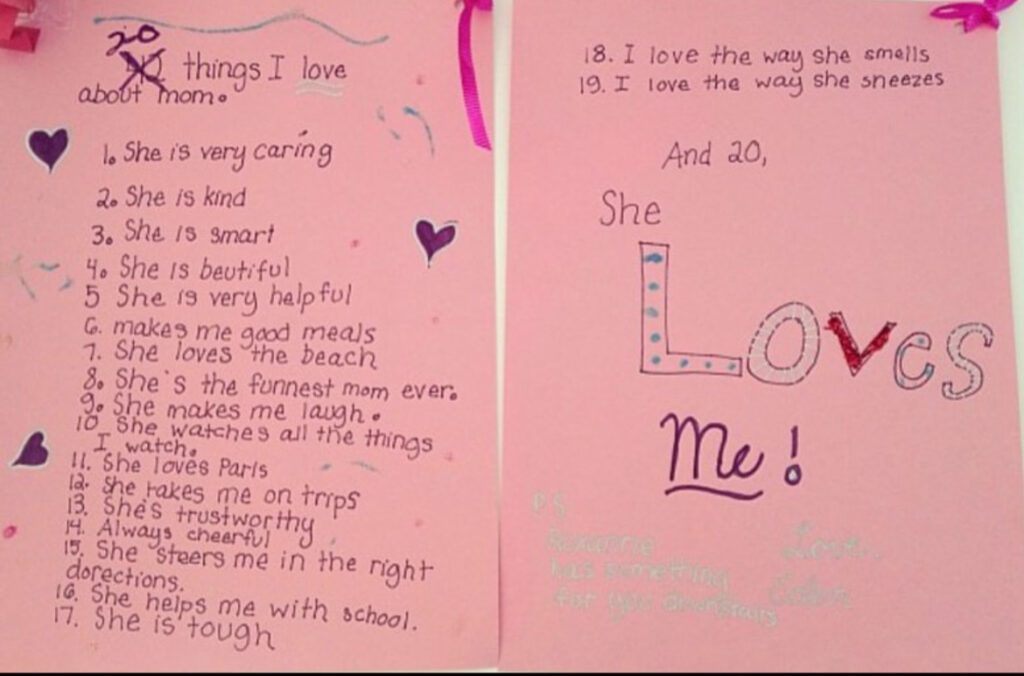 20
things I love
about mom.
1. She is very caring
2. She is kind
3. She is smart
4. She is beutiful
5 She is very helpful
6. makes me good meals
7. She loves the beach
8. She's the funnest mom ever.
9. She makes me laugh.
10. She watches all the things
I watch.
11. She loves Paris
12. She takes me on trips
13. She's trustworthy
14. Always cheerful
15. She steers me in the right
dorections.
16. She helps me with school.
17. She is tough
18. I love the way she smells
19. I love the way she sneezes
And 20,
She
Loves
Me!
P.S.
has something
for you downstairs
Love,